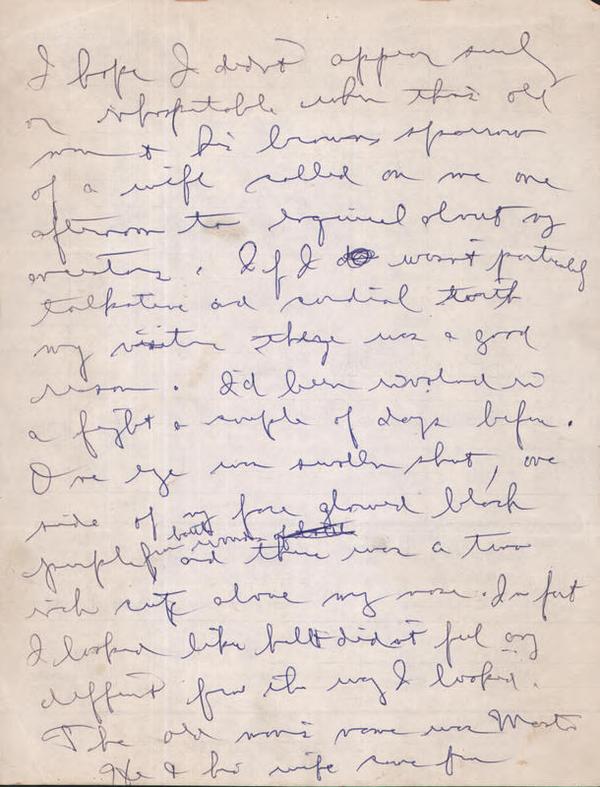 I hope I didn't appear surly
or inhospitable when this old
man & his brown sparrow
of a wife called on me one
afternoon to inquire about my
ancestors. If I wasn't particularly
talkative and cordial toward
my visitors there was a good
reason. I'd been involved in
a fight a couple of days before.
One eye was swollen shut, one
side of my face glowed black
purple from
and there was a two
inch cut above my nose. In fact
I looked like hell & didn't feel any
different from the way I looked.
The old man's name was
He & his wife came from